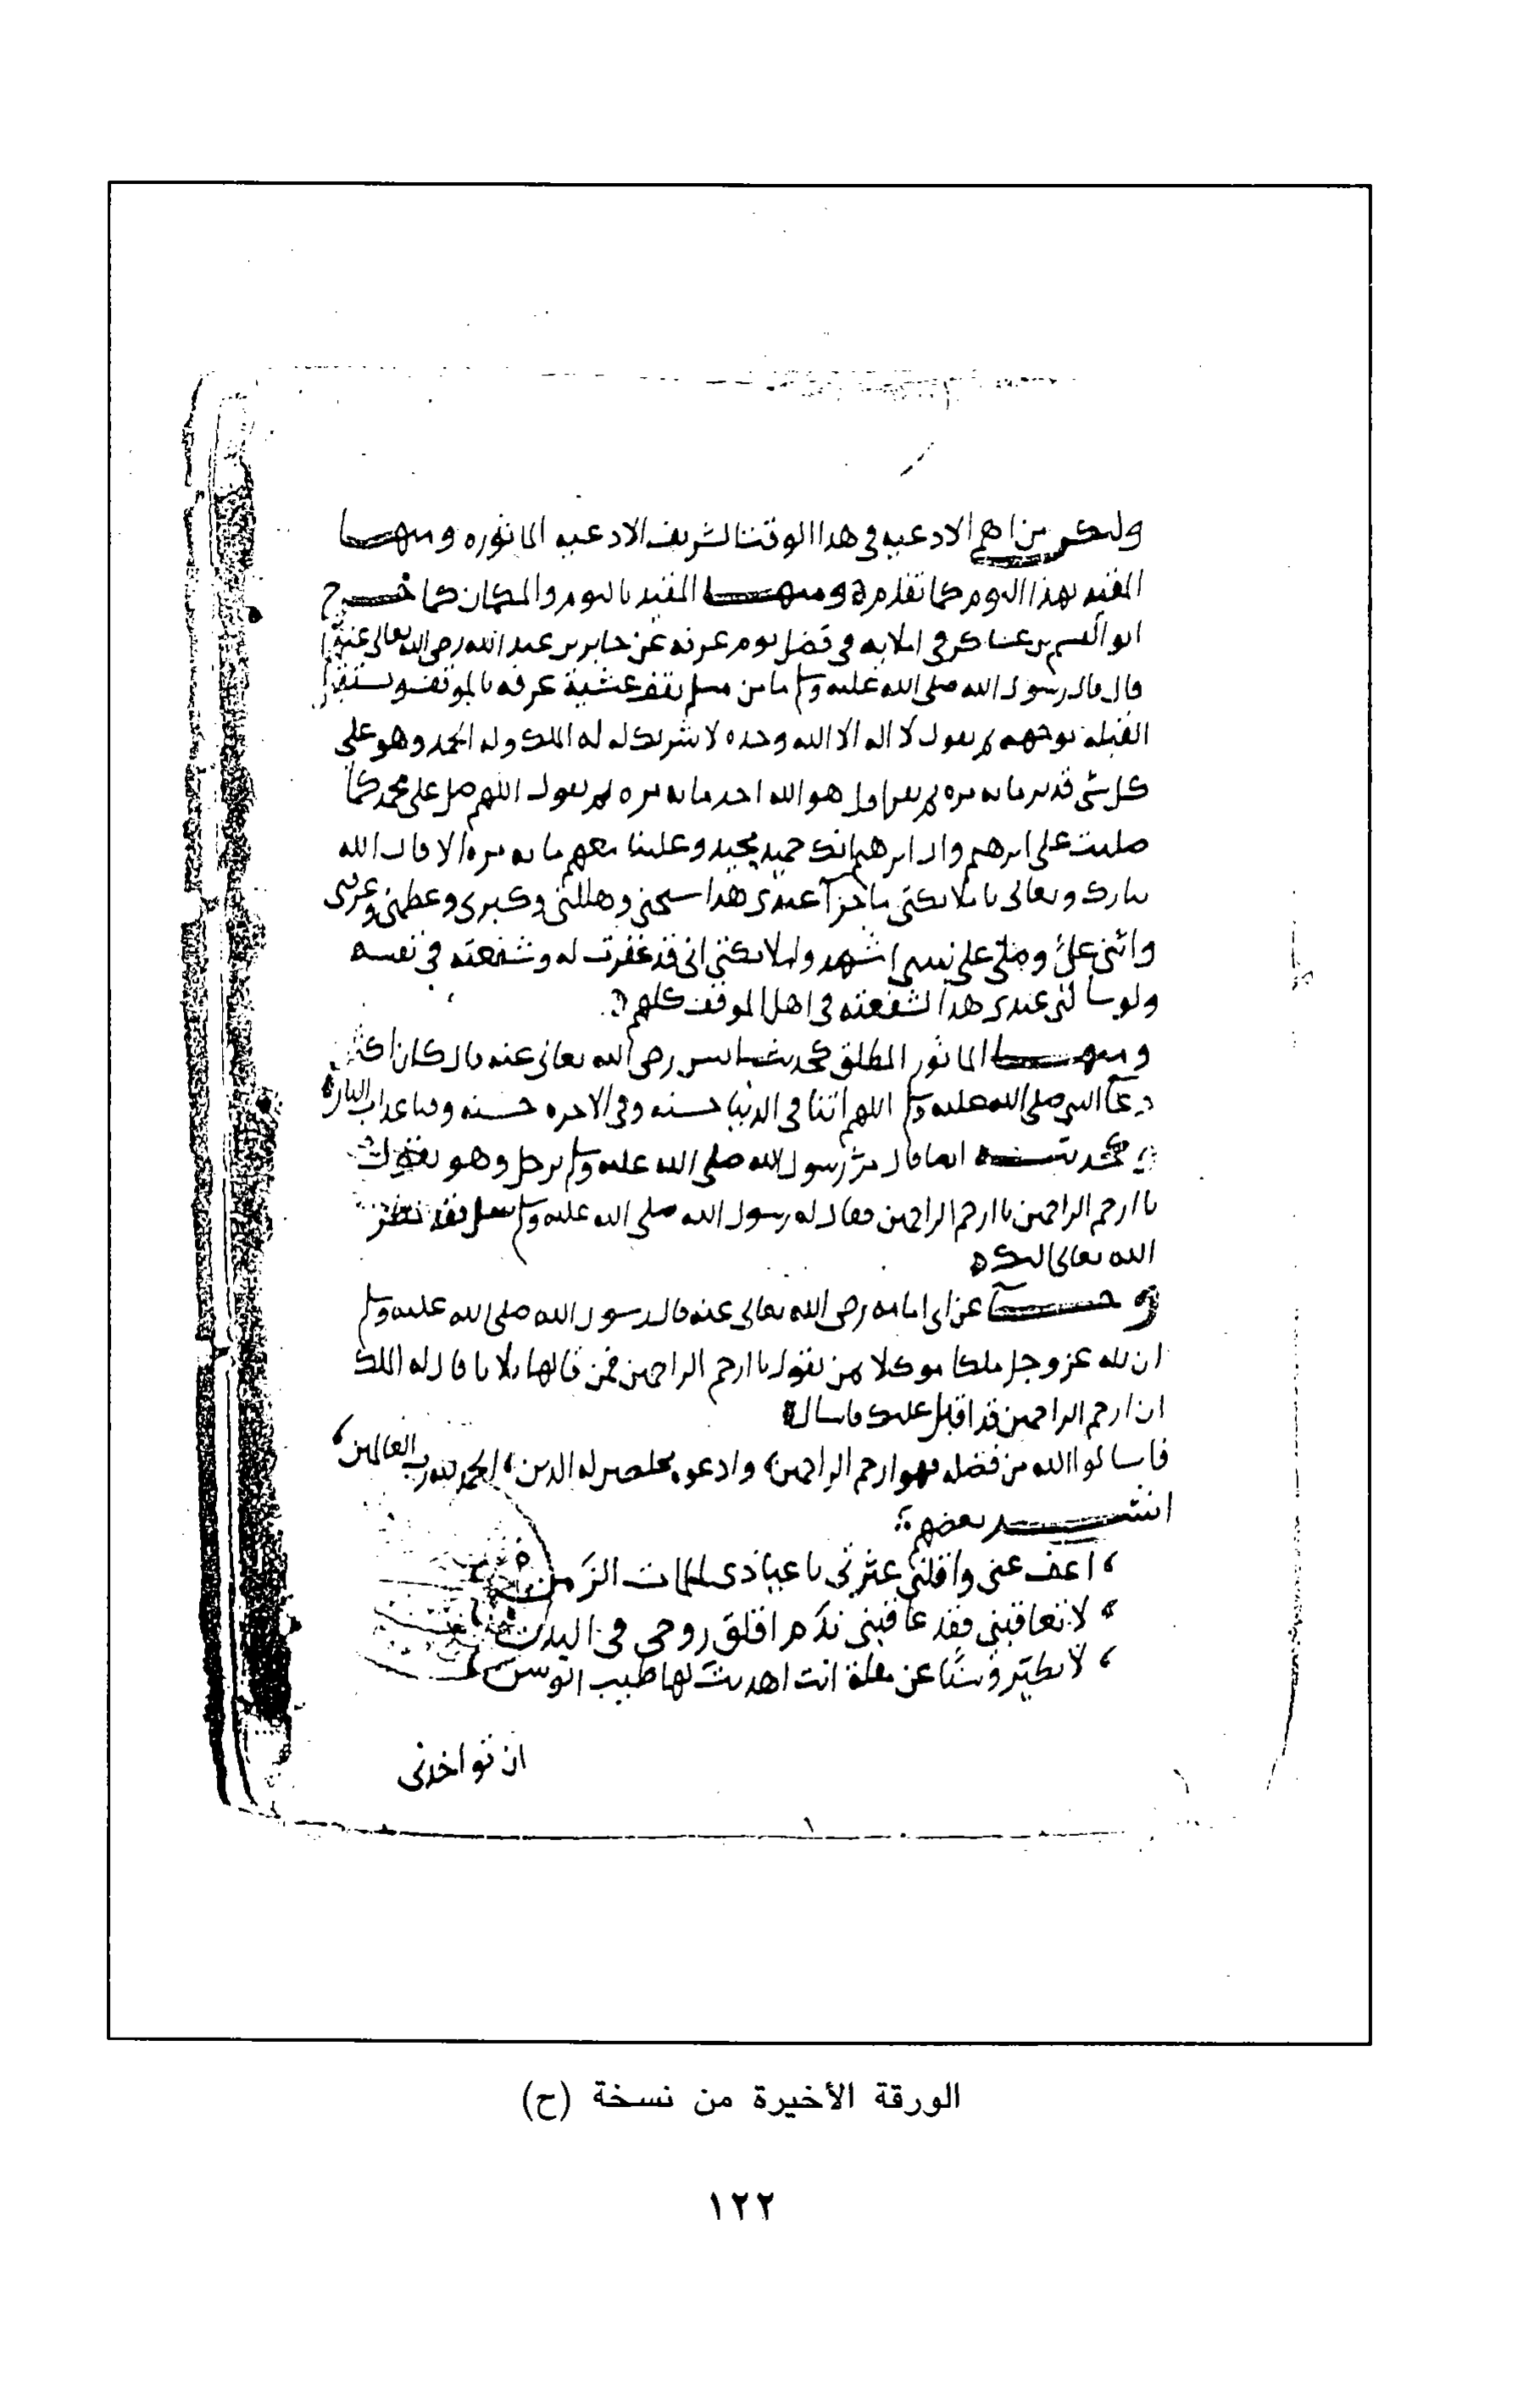 وليكن من اهم الادعيه في هدا الوقت الشريف الادعيه الماثوره ومنهـــا
المقيد بهذا اليوم كما تقدم ومنهـــا المقيد باليوم والمكان كما خـــرج
ابو القسم بن عساكر في املايه في فضل يوم عرفه عن جابر بن عبد الله رضي الله تعالى عنه
قال قال رسول الله صلى الله عليه وسلم ما من مسلم يقف عشية عرفه بالموقف ويستقبل
القبله بوجهه ثم يقول لا اله الا الله وحده لا شريك له له الملك وله الحمد وهو على
كل شي قدير مايه مره ثم يقرا قل هو الله احد مايه مره ثم يقول اللهم صل على محمد كما
صليت على ابرهيم وال ابرهيم انك حميد مجيد وعلينا معهم مايه مره الا قال الله
تبارك وتعالى يا ملايكتي ما جزآ عبدى هدا سبحنى وهللنى وكبرى وعظمنى وعرفنى
واثنى علىّ وصلى على نبيي اشهدوا ملايكتي انى قد غفرت له وشفعته في نفسه
ولو سالنى عبدى هدا لشفعته في اهل الموقف كلهم
ومنهـــا الماثور المطلق كحديث انس رضى الله تعالى عنه قال كان اكثر
دعآ النبى صلى الله عليه وسلم اللهم اتنا فى الدنيا حسنه وفى الاخره حسنه وقنا عداب النار
وكحديثـــه ايضا قال مرّ رسول الله صلى الله عليه وسلم برجل وهو يقول
يا ارحم الراحمين يا ارحم الراحمين فقال له رسول الله صلى الله عليه وسلم سل فقد نظر
الله تعالى اليك
عن ابى امامه رضى الله تعالى عنه قال رسول الله صلى الله عليه وسلم
ان لله عز وجل ملكا موكلا بمن يقول يا ارحم الراحمين فمن قالها ثلاثا قال له الملك
ان ارحم الراحمين قد اقبل عليك فاساله
فاسالوا الله من فضله فهو ارحم الراحمين وادعوه مخلصين له الدين الحمد لله رب العالمين
انشـــد بعضهم
اعف عنى واقلنى عثرتى يا عياذى لملمات الزَمن
لا تعاقبني فقد عاقبنى ندَم اقلق روحى فى البدن
لا تطيّر وسنًا عن مقلة انت اهديت لها طيب الوسن
ان تواخدنى
الورقة الأخيرة من نسخة (ح)
١٢٢